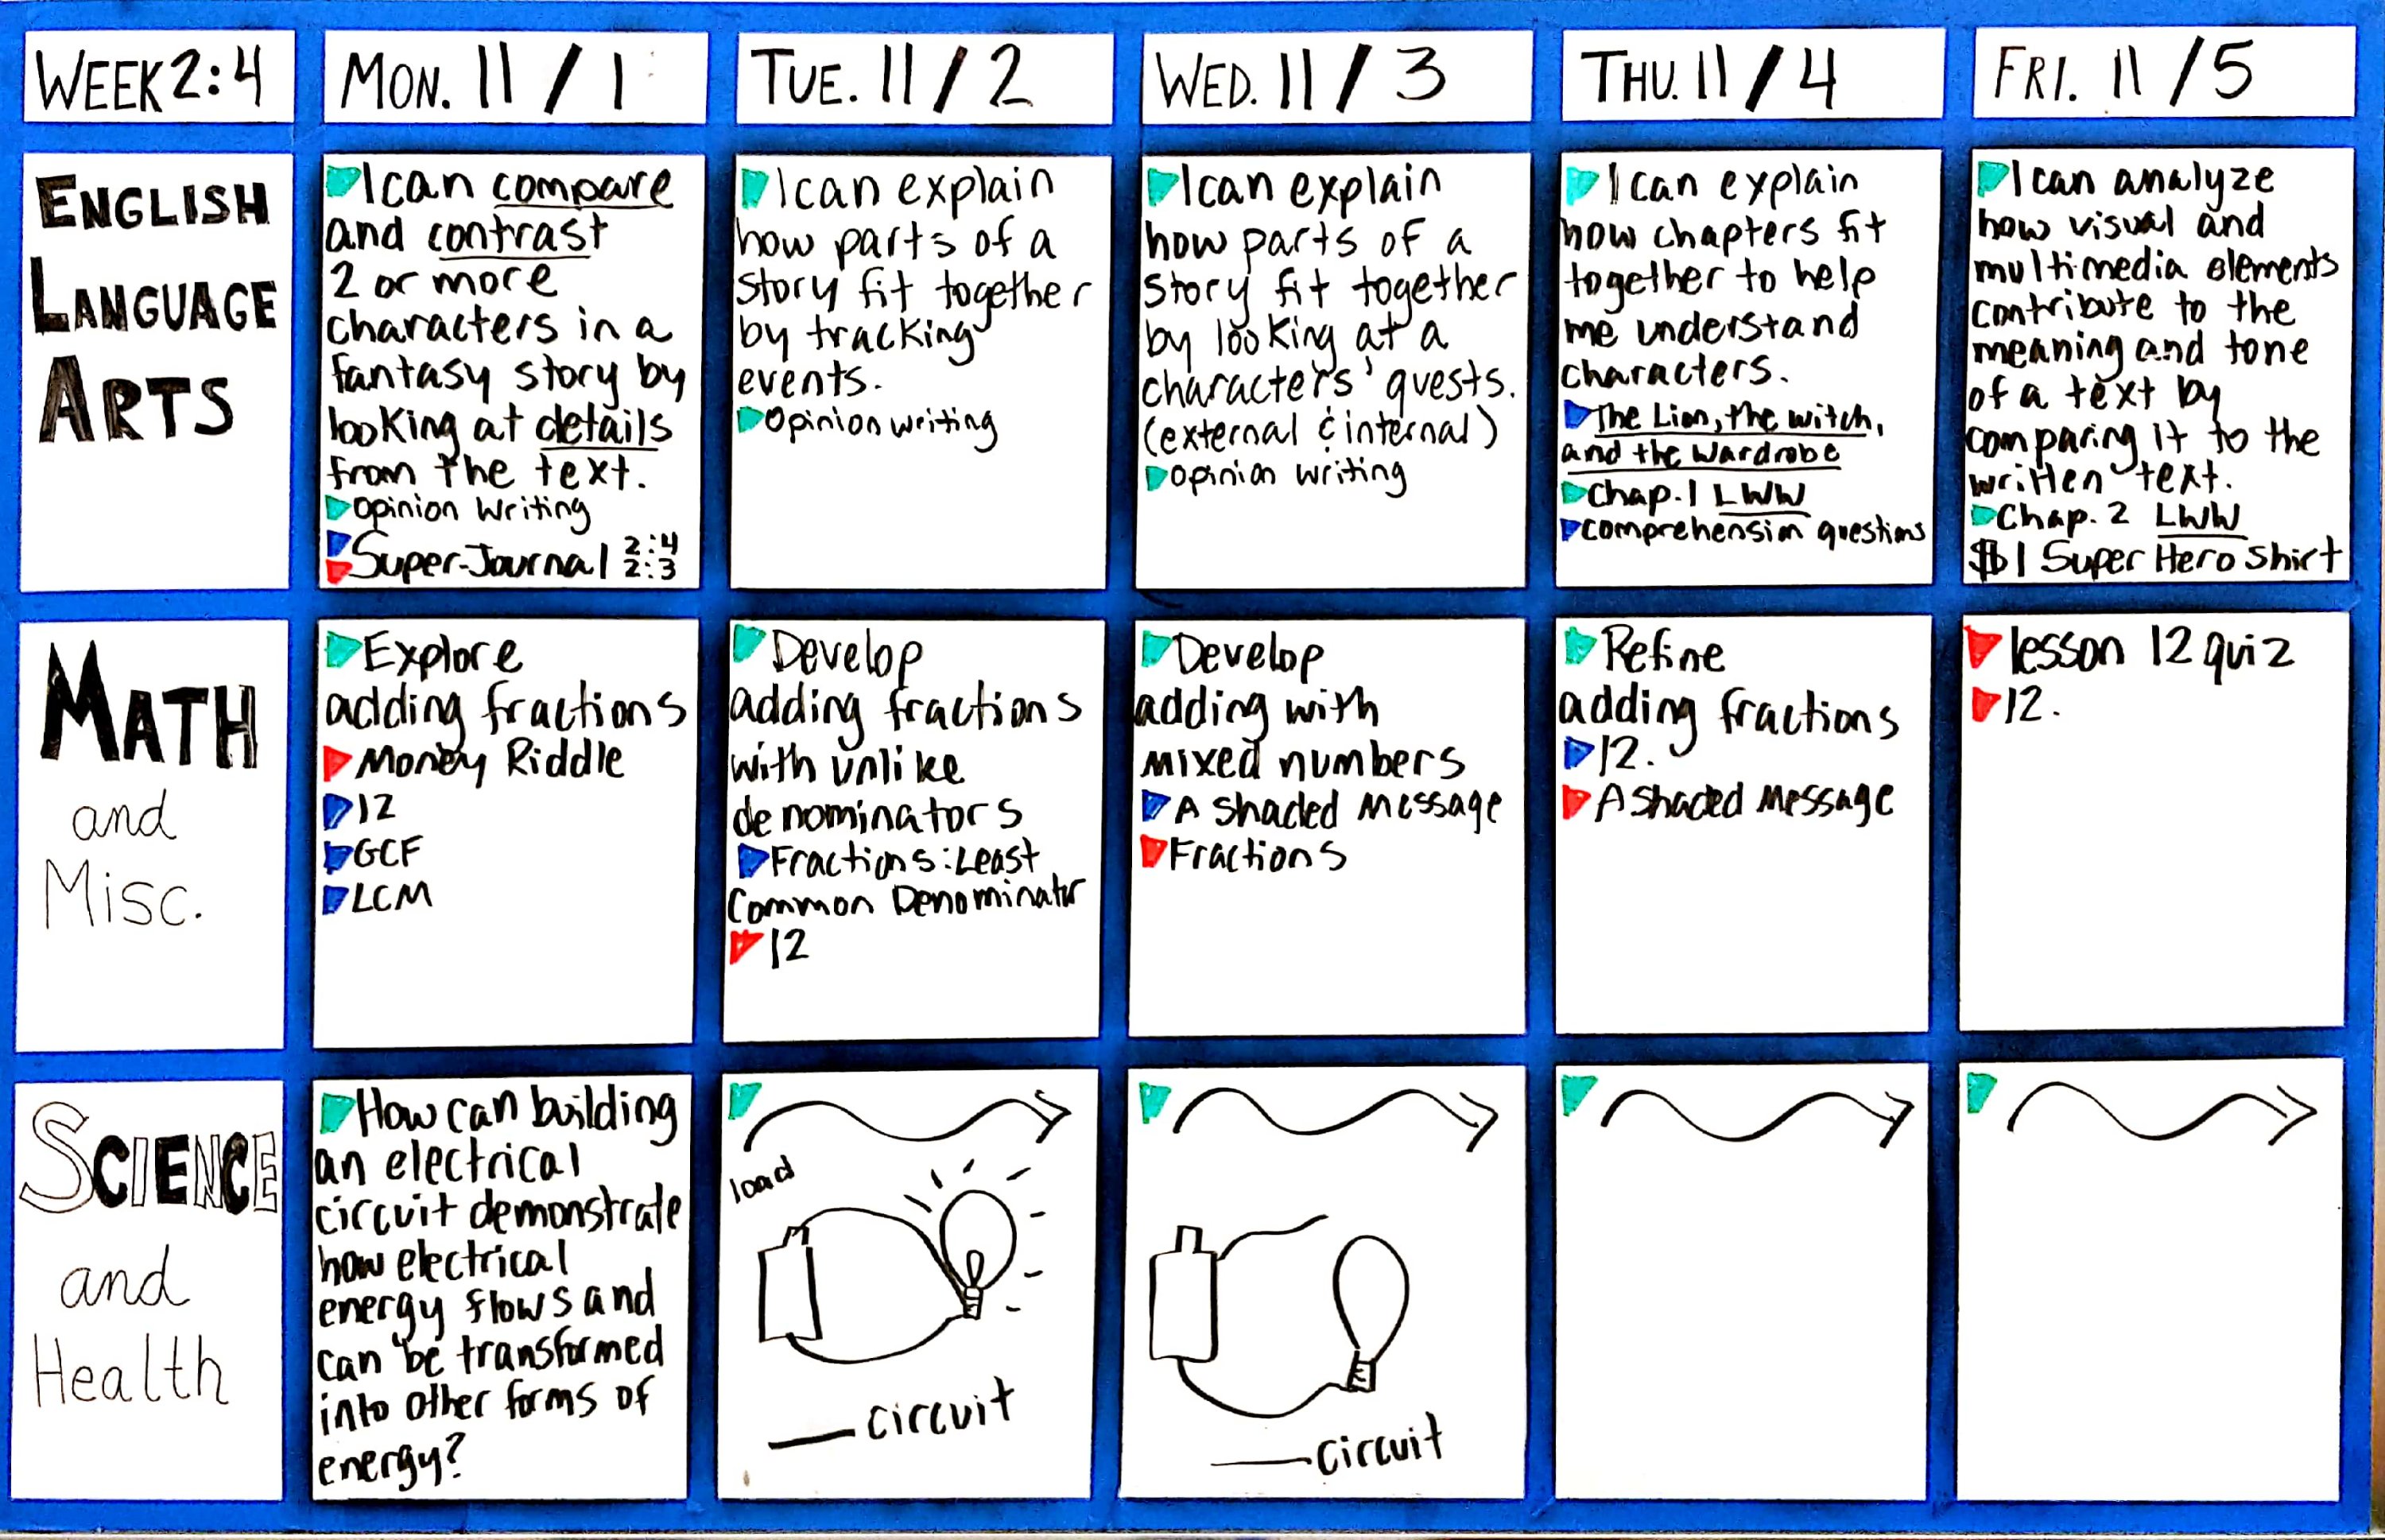 WEEK 2:4
MON. 11/1
TUE. 11/2
WED. 11/3
THU. 11/4
FRI. 11/5
ENGLISH
LANGUAGE
ARTS
I can compare
and contrast
2 or more
characters in a
fantasy story by
looking at details
from the text.
Opinion Writing
Super-Journal 2:4
2:3
I can explain
how parts of a
story fit together
by tracking
events.
Opinion writing
I can explain
how parts of a
story fit together
by looking at a
characters' quests.
(external & internal)
Opinion writing
I can explain
how chapters fit
together to help
me understand
characters.
The Lion, the witch,
and the Wardrobe
Chap. 1 LWW
comprehension questions
I can analyze
how visual and
multimedia elements
contribute to the
meaning and tone
of a text by
comparing it to the
written text.
Chap. 2 LWW
$1 Super Hero Shirt
MATH
and
Misc.
Explore
adding fractions
Money Riddle
12
GCF
LCM
Develop
adding fractions
with unlike
denominators
Fractions: Least
Common Denominator
12
Develop
adding with
mixed numbers
A Shaded Message
Fractions
Refine
adding fractions
12.
A Shaded Message
lesson 12 quiz
12.
SCIENCE
and
Health
How can building
an electrical
circuit demonstrate
how electrical
energy flows and
can be transformed
into other forms of
energy?
load
___ circuit
___ circuit